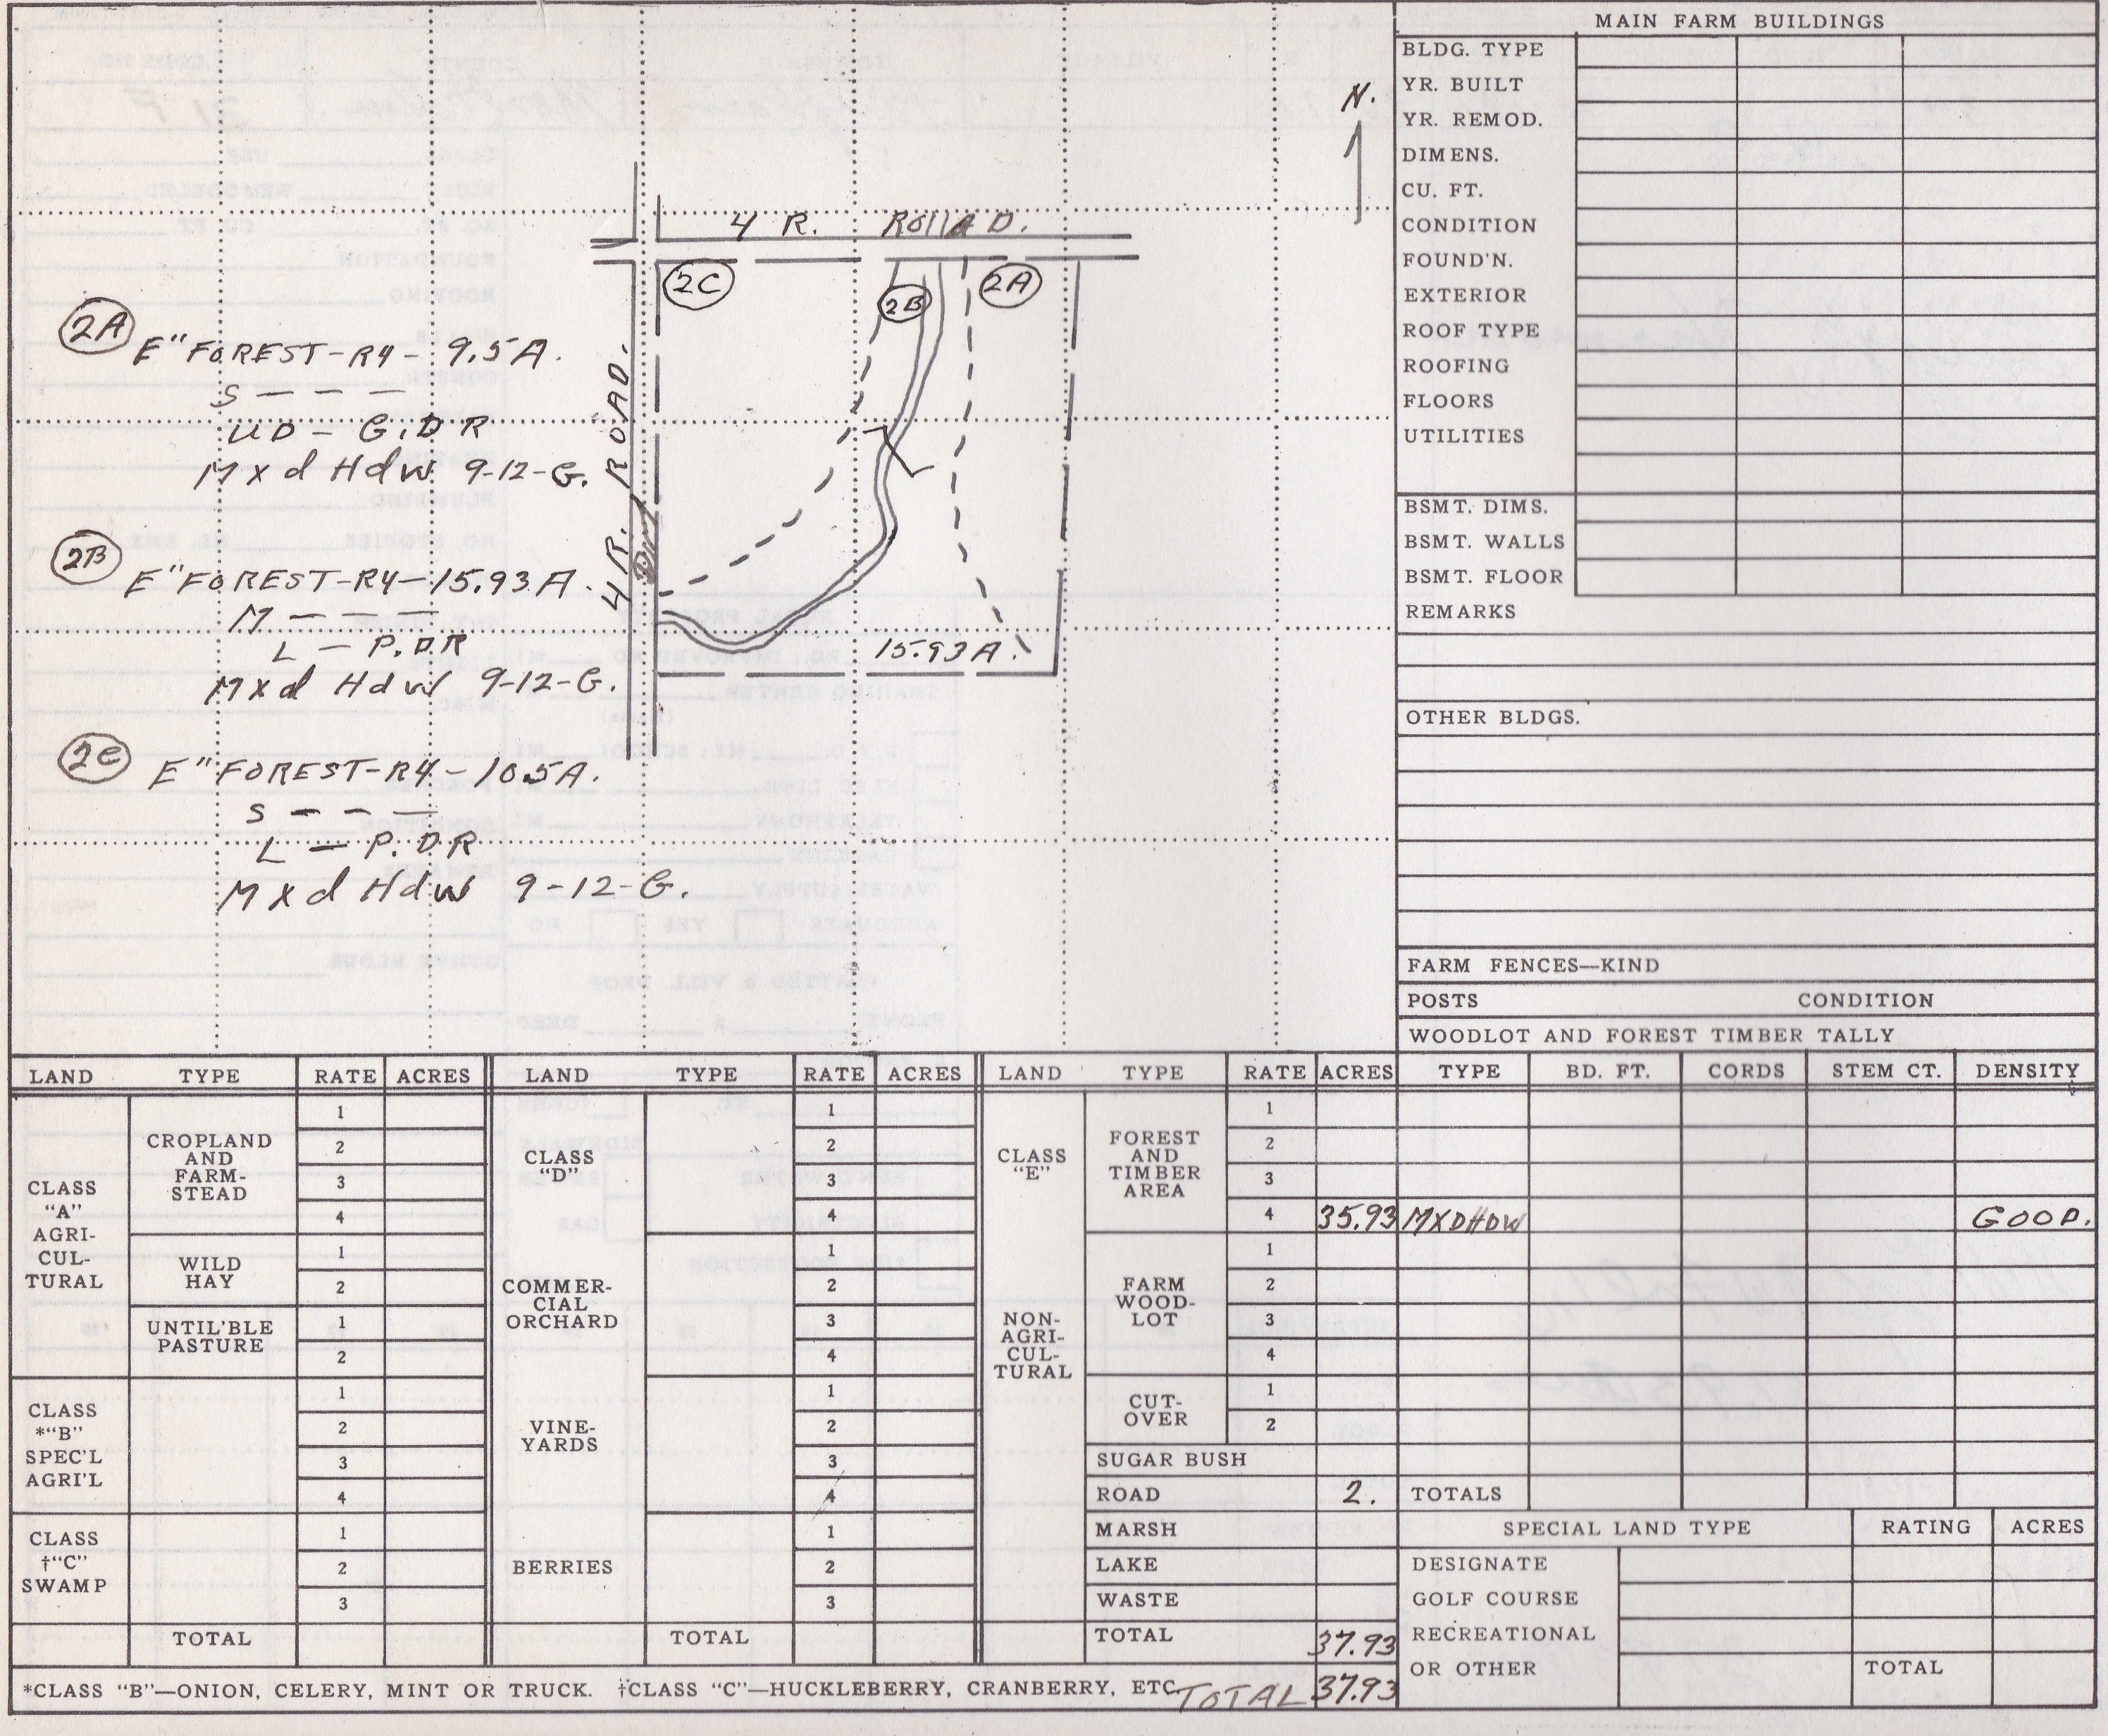 N.
4 R. Roll A D.
2C
2B
2A
2A
E" FOREST-R4- 9.5A.
S — — —
UD - G.DR
Mxd Hdw 9-12-G.
4 R. ROAD.
2B
E" FOREST-R4-15.93A.
M — — —
L — P.DR
Mxd Hdw 9-12-G.
15.93A.
2C
E" FOREST-R4-10.5A.
S — — —
L — P.DR
Mxd Hdw 9-12-G.
MAIN FARM BUILDINGS
BLDG. TYPE
YR. BUILT
YR. REMOD.
DIMENS.
CU. FT.
CONDITION
FOUND'N.
EXTERIOR
ROOF TYPE
ROOFING
FLOORS
UTILITIES
BSMT. DIMS.
BSMT. WALLS
BSMT. FLOOR
REMARKS
OTHER BLDGS.
FARM FENCES—KIND
POSTS CONDITION
WOODLOT AND FOREST TIMBER TALLY
TYPE BD. FT. CORDS STEM CT. DENSITY
MXDHDW GOOD.
TOTALS
LAND TYPE RATE ACRES
CLASS
"A"
AGRI-
CUL-
TURAL
CROPLAND
AND
FARM-
STEAD
1
2
3
4
WILD
HAY
1
2
UNTIL'BLE
PASTURE
1
2
CLASS
*"B"
SPEC'L
AGRI'L
1
2
3
4
CLASS
†"C"
SWAMP
1
2
3
TOTAL
LAND TYPE RATE ACRES
CLASS
"D"
1
2
3
4
COMMER-
CIAL
ORCHARD
1
2
3
4
VINE-
YARDS
1
2
3
4
BERRIES
1
2
3
TOTAL
LAND TYPE RATE ACRES
CLASS
"E"
NON-
AGRI-
CUL-
TURAL
FOREST
AND
TIMBER
AREA
1
2
3
4 35.93
FARM
WOOD-
LOT
1
2
3
4
CUT-
OVER
1
2
SUGAR BUSH
ROAD 2.
MARSH
LAKE
WASTE
TOTAL 37.93
SPECIAL LAND TYPE RATING ACRES
DESIGNATE
GOLF COURSE
RECREATIONAL
OR OTHER
TOTAL
*CLASS "B"—ONION, CELERY, MINT OR TRUCK. †CLASS "C"—HUCKLEBERRY, CRANBERRY, ETC.
TOTAL 37.93